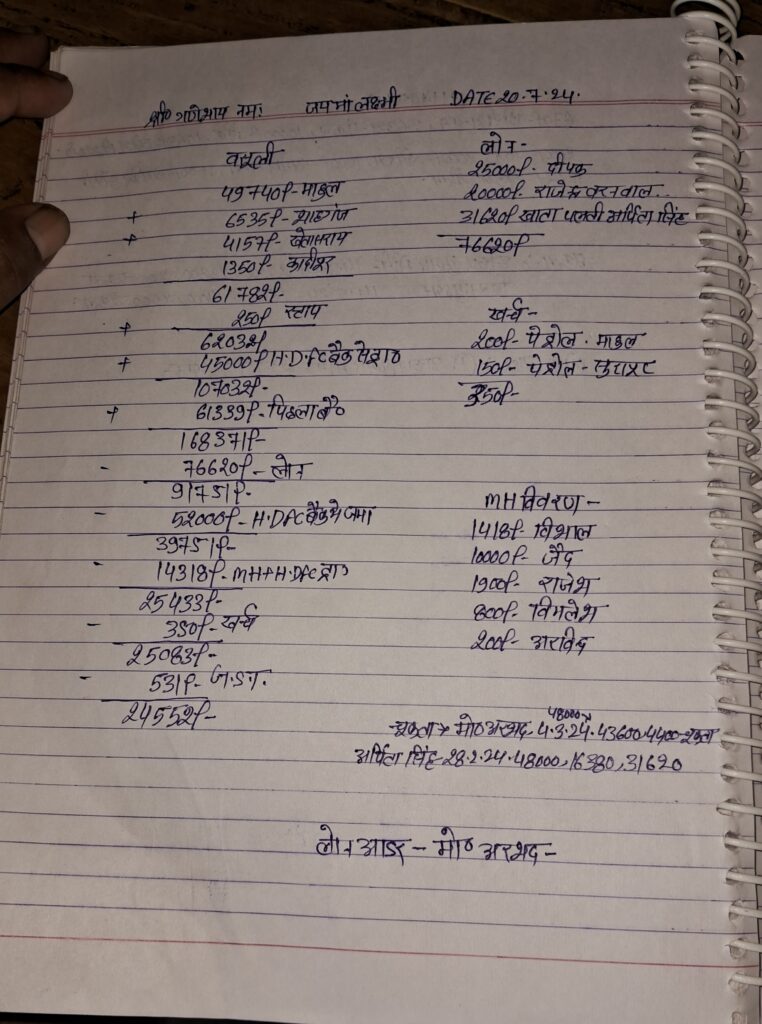 श्री० गणेशाय नमः जय मां लक्ष्मी DATE 20.7.24.
वसूली
49740/- माडल
+ 6535/-
+ 4157/- खेतासराय
1350/-
61782/-
+ 250/- स्टाप
62032/-
+ 45000/- H.D.FC बैंक से
107032/-
+ 61339/- पिछला बै०
168371/-
- 76620/- लोन
91751/-
- 52000/- H.DFC बैंक मे जमा
39751/-
- 14318/- MH+H.DFC
25433/-
- 350/- खर्च
25083/-
- 531/- G.S.T.
24552/-
लोन-
25000/- दीपक
20000/- राजेन्द्र
31620/- खाता पलटी अर्पिता सिंह
76620/-
खर्च-
200/- पेट्रोल. माडल
150/- पेट्रोल-
350/-
MH विवरण-
1418/- विशाल
10000/- जैद
1900/- राजेश
800/- विमलेश
200/- अरविंद
48000
मो० अरशद. 4.3.24. 43600. 4400-
अर्पिता सिंह- 28.2.24. 48000, 16380, 31620
लोन आडर - मो० अरशद-